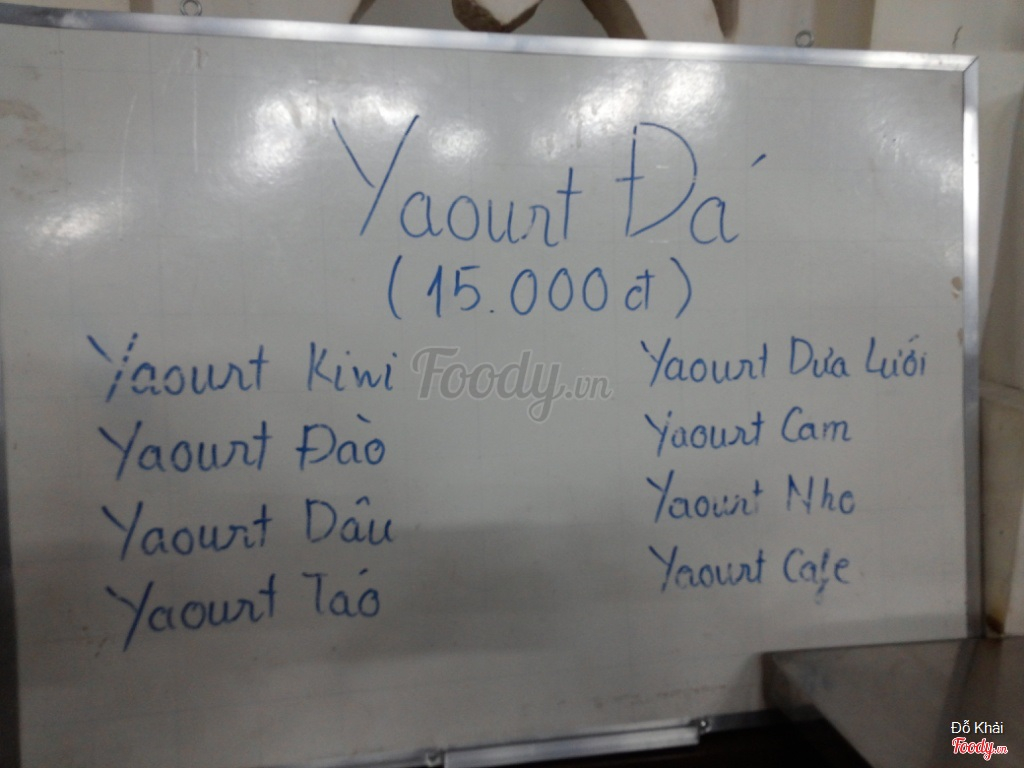 Yaourt Đá
(15.000đ)
Yaourt Kiwi
Yaourt Đào
Yaourt Dâu
Yaourt Táo
Yaourt Dưa Lưới
Yaourt Cam
Yaourt Nho
Yaourt Cafe
Foody.vn
Đỗ Khải
Foody.vn